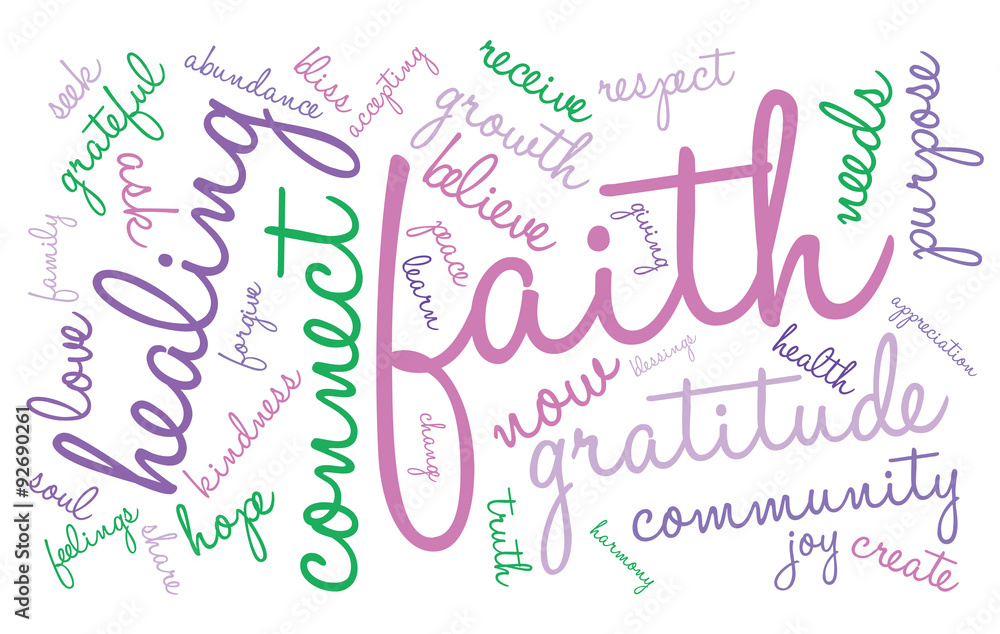 seek
grateful
abundance
bliss
accepting
receive
respect
growth
needs
purpose
ask
healing
believe
faith
family
connect
peace
learn
giving
forgive
love
appreciation
health
blessings
now
gratitude
kindness
change
soul
hope
community
feelings
share
truth
harmony
joy
create
Adobe Stock | #92690261
Adobe Stock